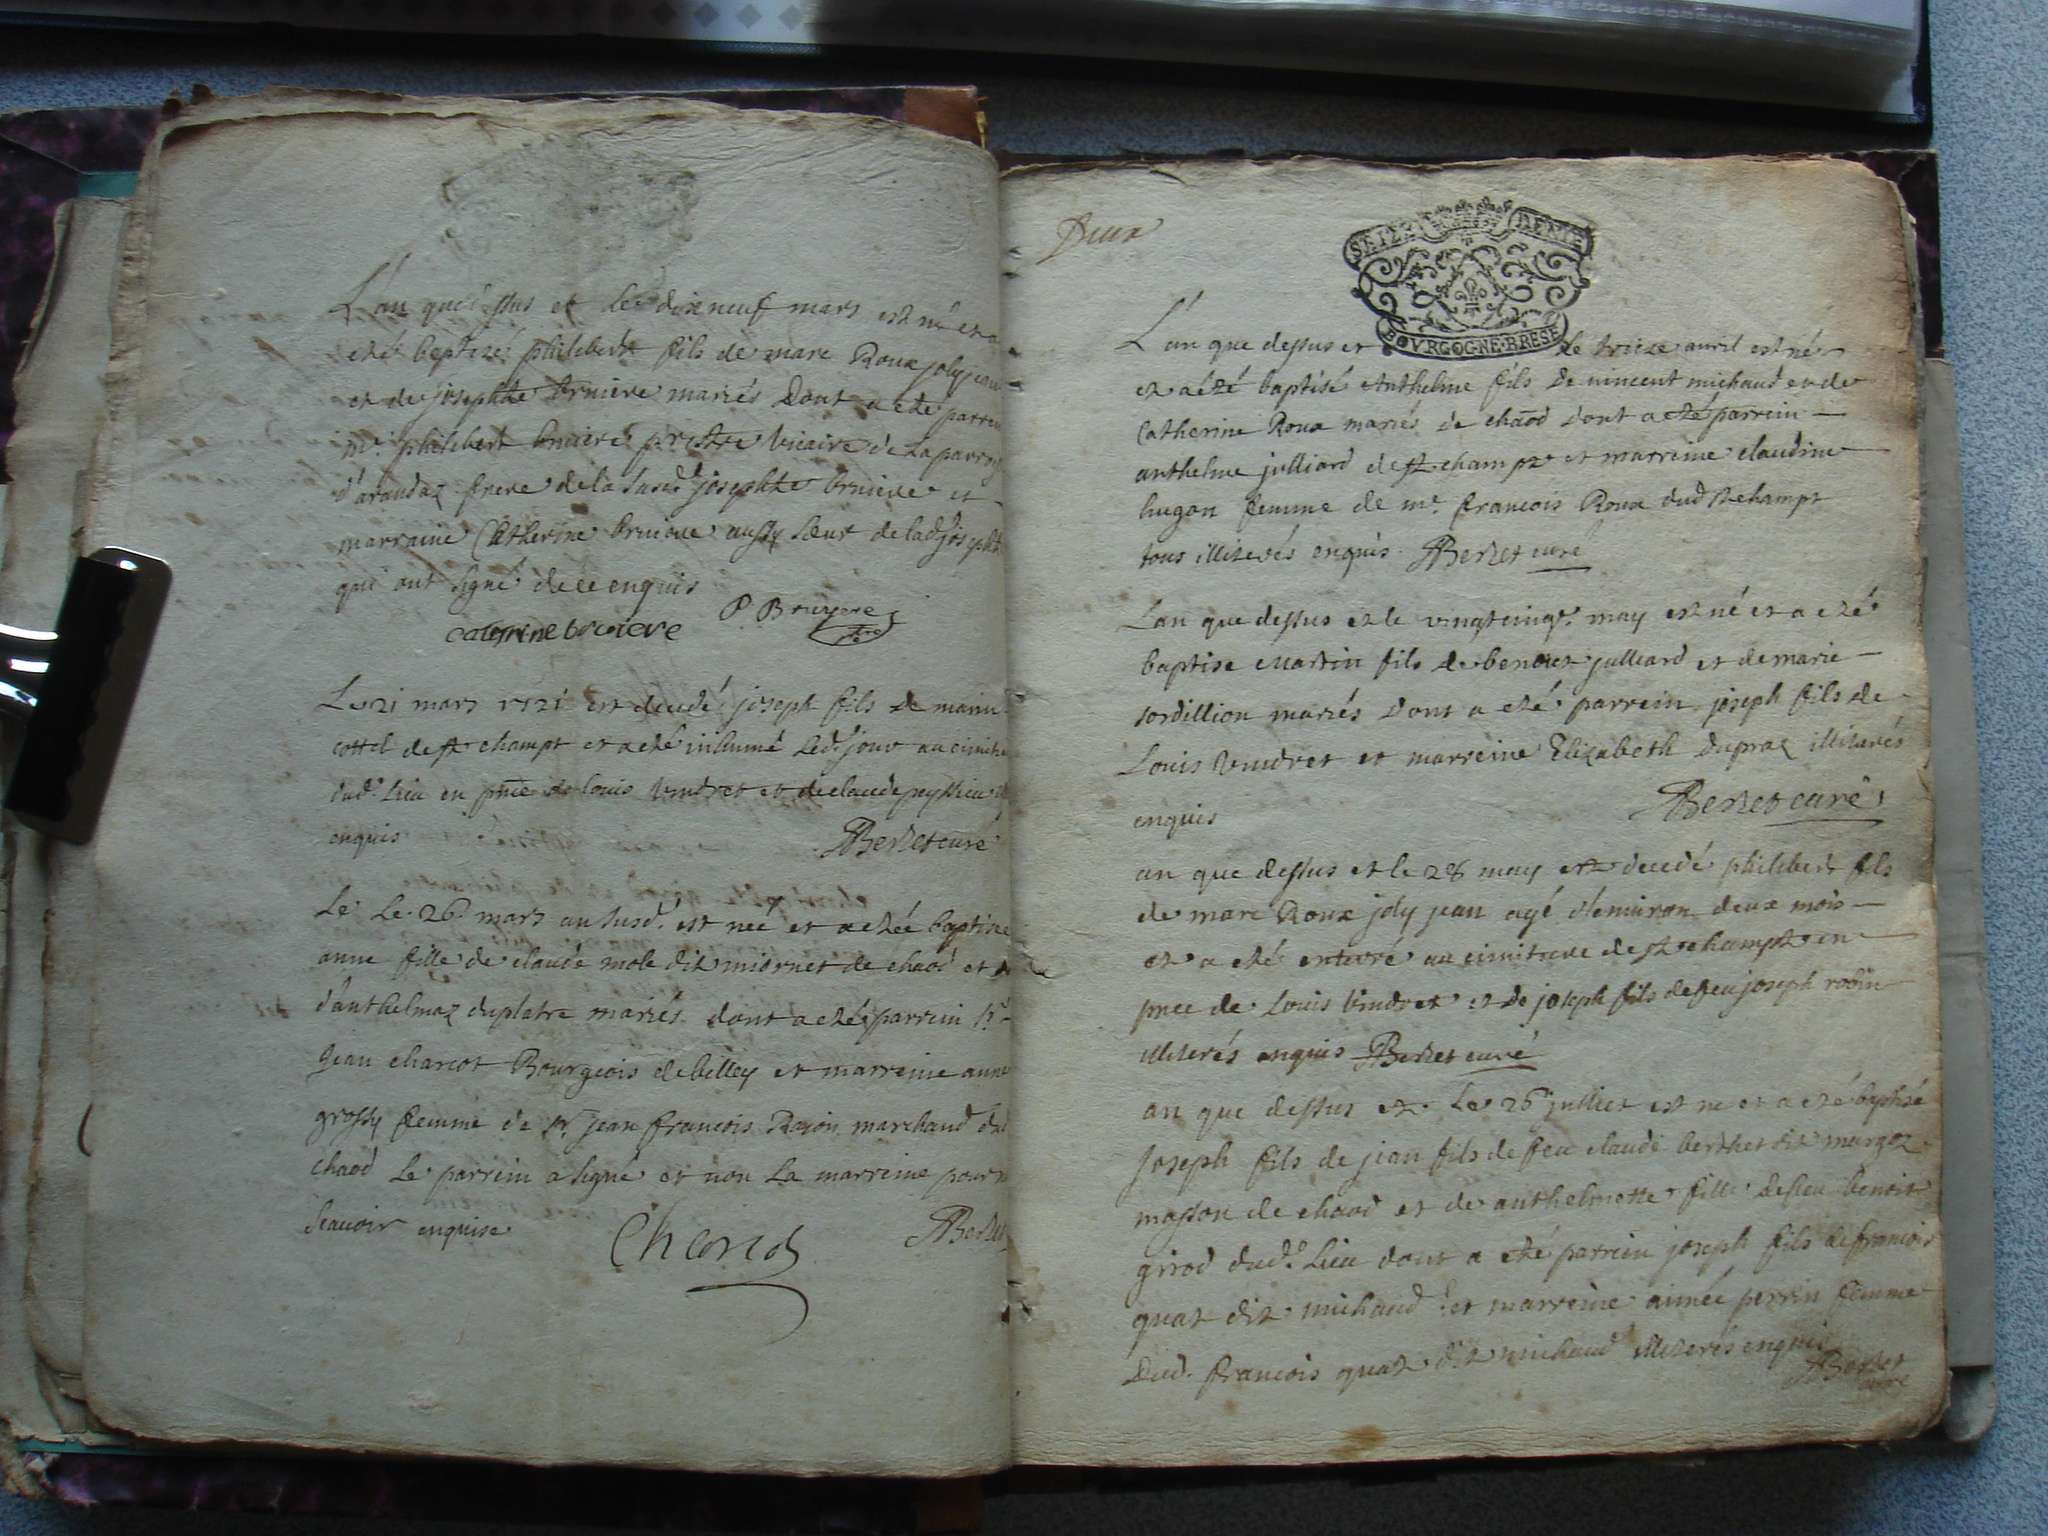 L'an que dessus et le dixneuf mars est né et a
eté baptizé philibert fils de marc Roux joly jean
et de josephte bruiere mariés Dont a eté parrein
mr. philibert bruiere prestre vicaire de La parroi
d'arandaz frere de la susd. josephte bruiere et
marraine Catherine bruiere aussy sœur de lad. josephte
qui ont signé de ce enquis
caterine bruiere P. Bruyere
Le 21 mars 1721 est decedé joseph fils de
cottel de st champt et a eté inhumé led. jour au cimitie
dud. Lieu en pnce de louis Vindret et de claude peyssieu
enquis Berlet curé
Le Le 26 mars an susd. est neé et a eteé baptisée
anne fille de claude mole dit miornet de chaod et
d'anthelmaz duplatre mariés dont a eté parrein sr.
jean charcot Bourgeois de belley et marreine anne
grossy femme de sr. jean francois Rajon marchand dud
chaod Le parrein a signé et non La marreine pour n
scavoir enquise
Charcot Berlet
Deux
SEIZE DENIE
BOVRGOGNE·BRESE
L'an que dessus et le treize avril est né
et a été baptisé Anthelme fils de vincent michaud et de
Catherine Roux mariés de chaod dont a eté parrein
anthelme julliard de st champt et marreine claudine
hugon femme de mr. francois Roux dud st champt
tous illiterés enquis. Berlet curé
L'an que dessus et le vingtcinq. may est né et a eté
baptise Martin fils de benoit julliard et de marie
sordillion mariés Dont a eté parrein joseph fils de
Louis Vindret et marreine Elizabeth Dupraz illiterés
enquis Berlet curé
an que dessus et le 28 may est decedé philibert fils
de marc Roux joly jean agé d'environ deux mois
et a eté enterré au cimitiere de st champt en
pnce de Louis Vindret et de joseph fils de feu joseph robin
illiterés enquis Berlet curé
an que dessus et Le 26 julliet est né et a eté baptisé
joseph fils de jean fils de feu claude berthet dit margoz
masson de chaod et de anthelmette fille de feu benoit
girod dud. Lieu dont a eté parrein joseph fils de francois
quat dit michaud et marreine aimée perrin femme
Dud. francois quat dit michaud illiterés enquis
Berlet
curé